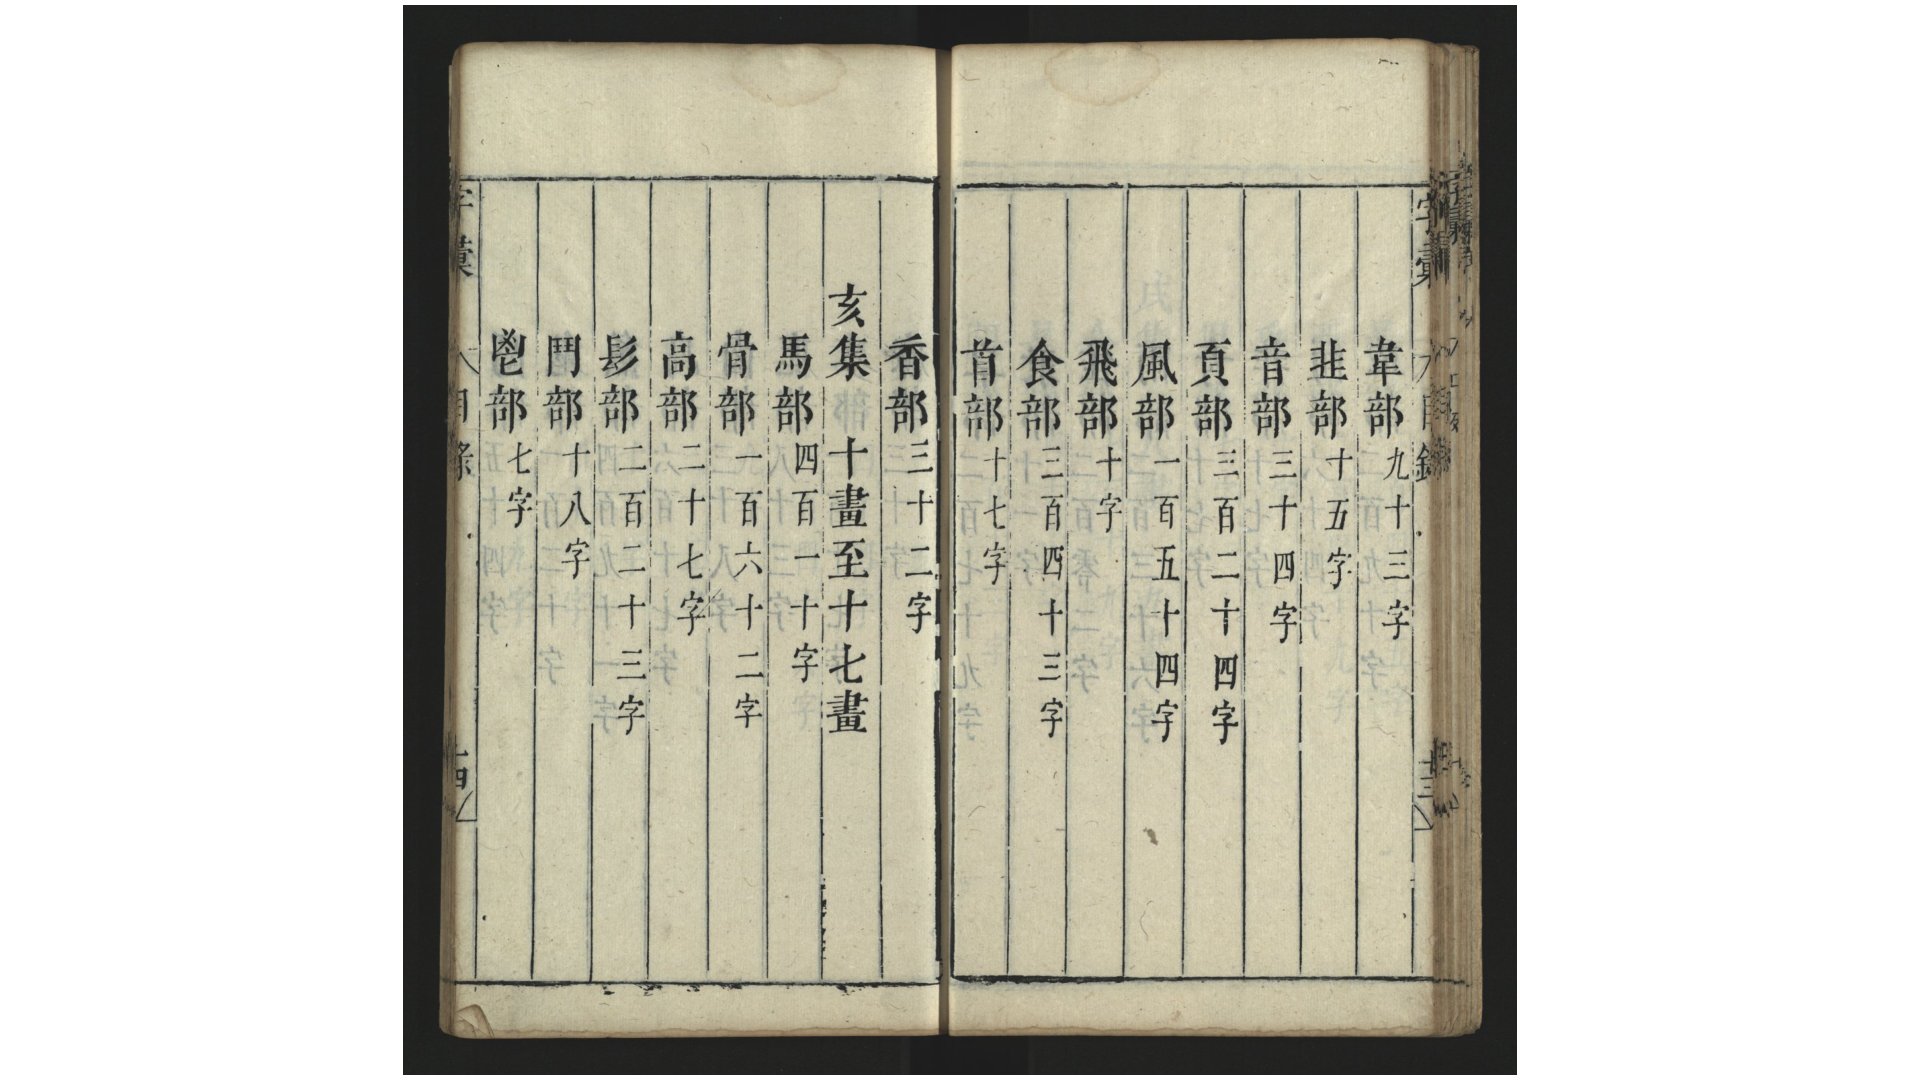 字彙 目錄
韋部九十三字
韭部十五字
音部三十四字
頁部三百二十四字
風部一百五十四字
飛部十字
食部三百四十三字
首部十七字
香部三十二字
亥集十畫至十七畫
馬部四百一十字
骨部一百六十二字
高部二十七字
髟部二百二十三字
鬥部十八字
鬯部七字
字彙 目錄 十四